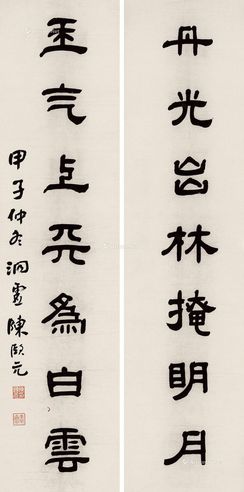 丹光出林掩明月
玉气上天為白雲
甲子仲冬洞虛陳元